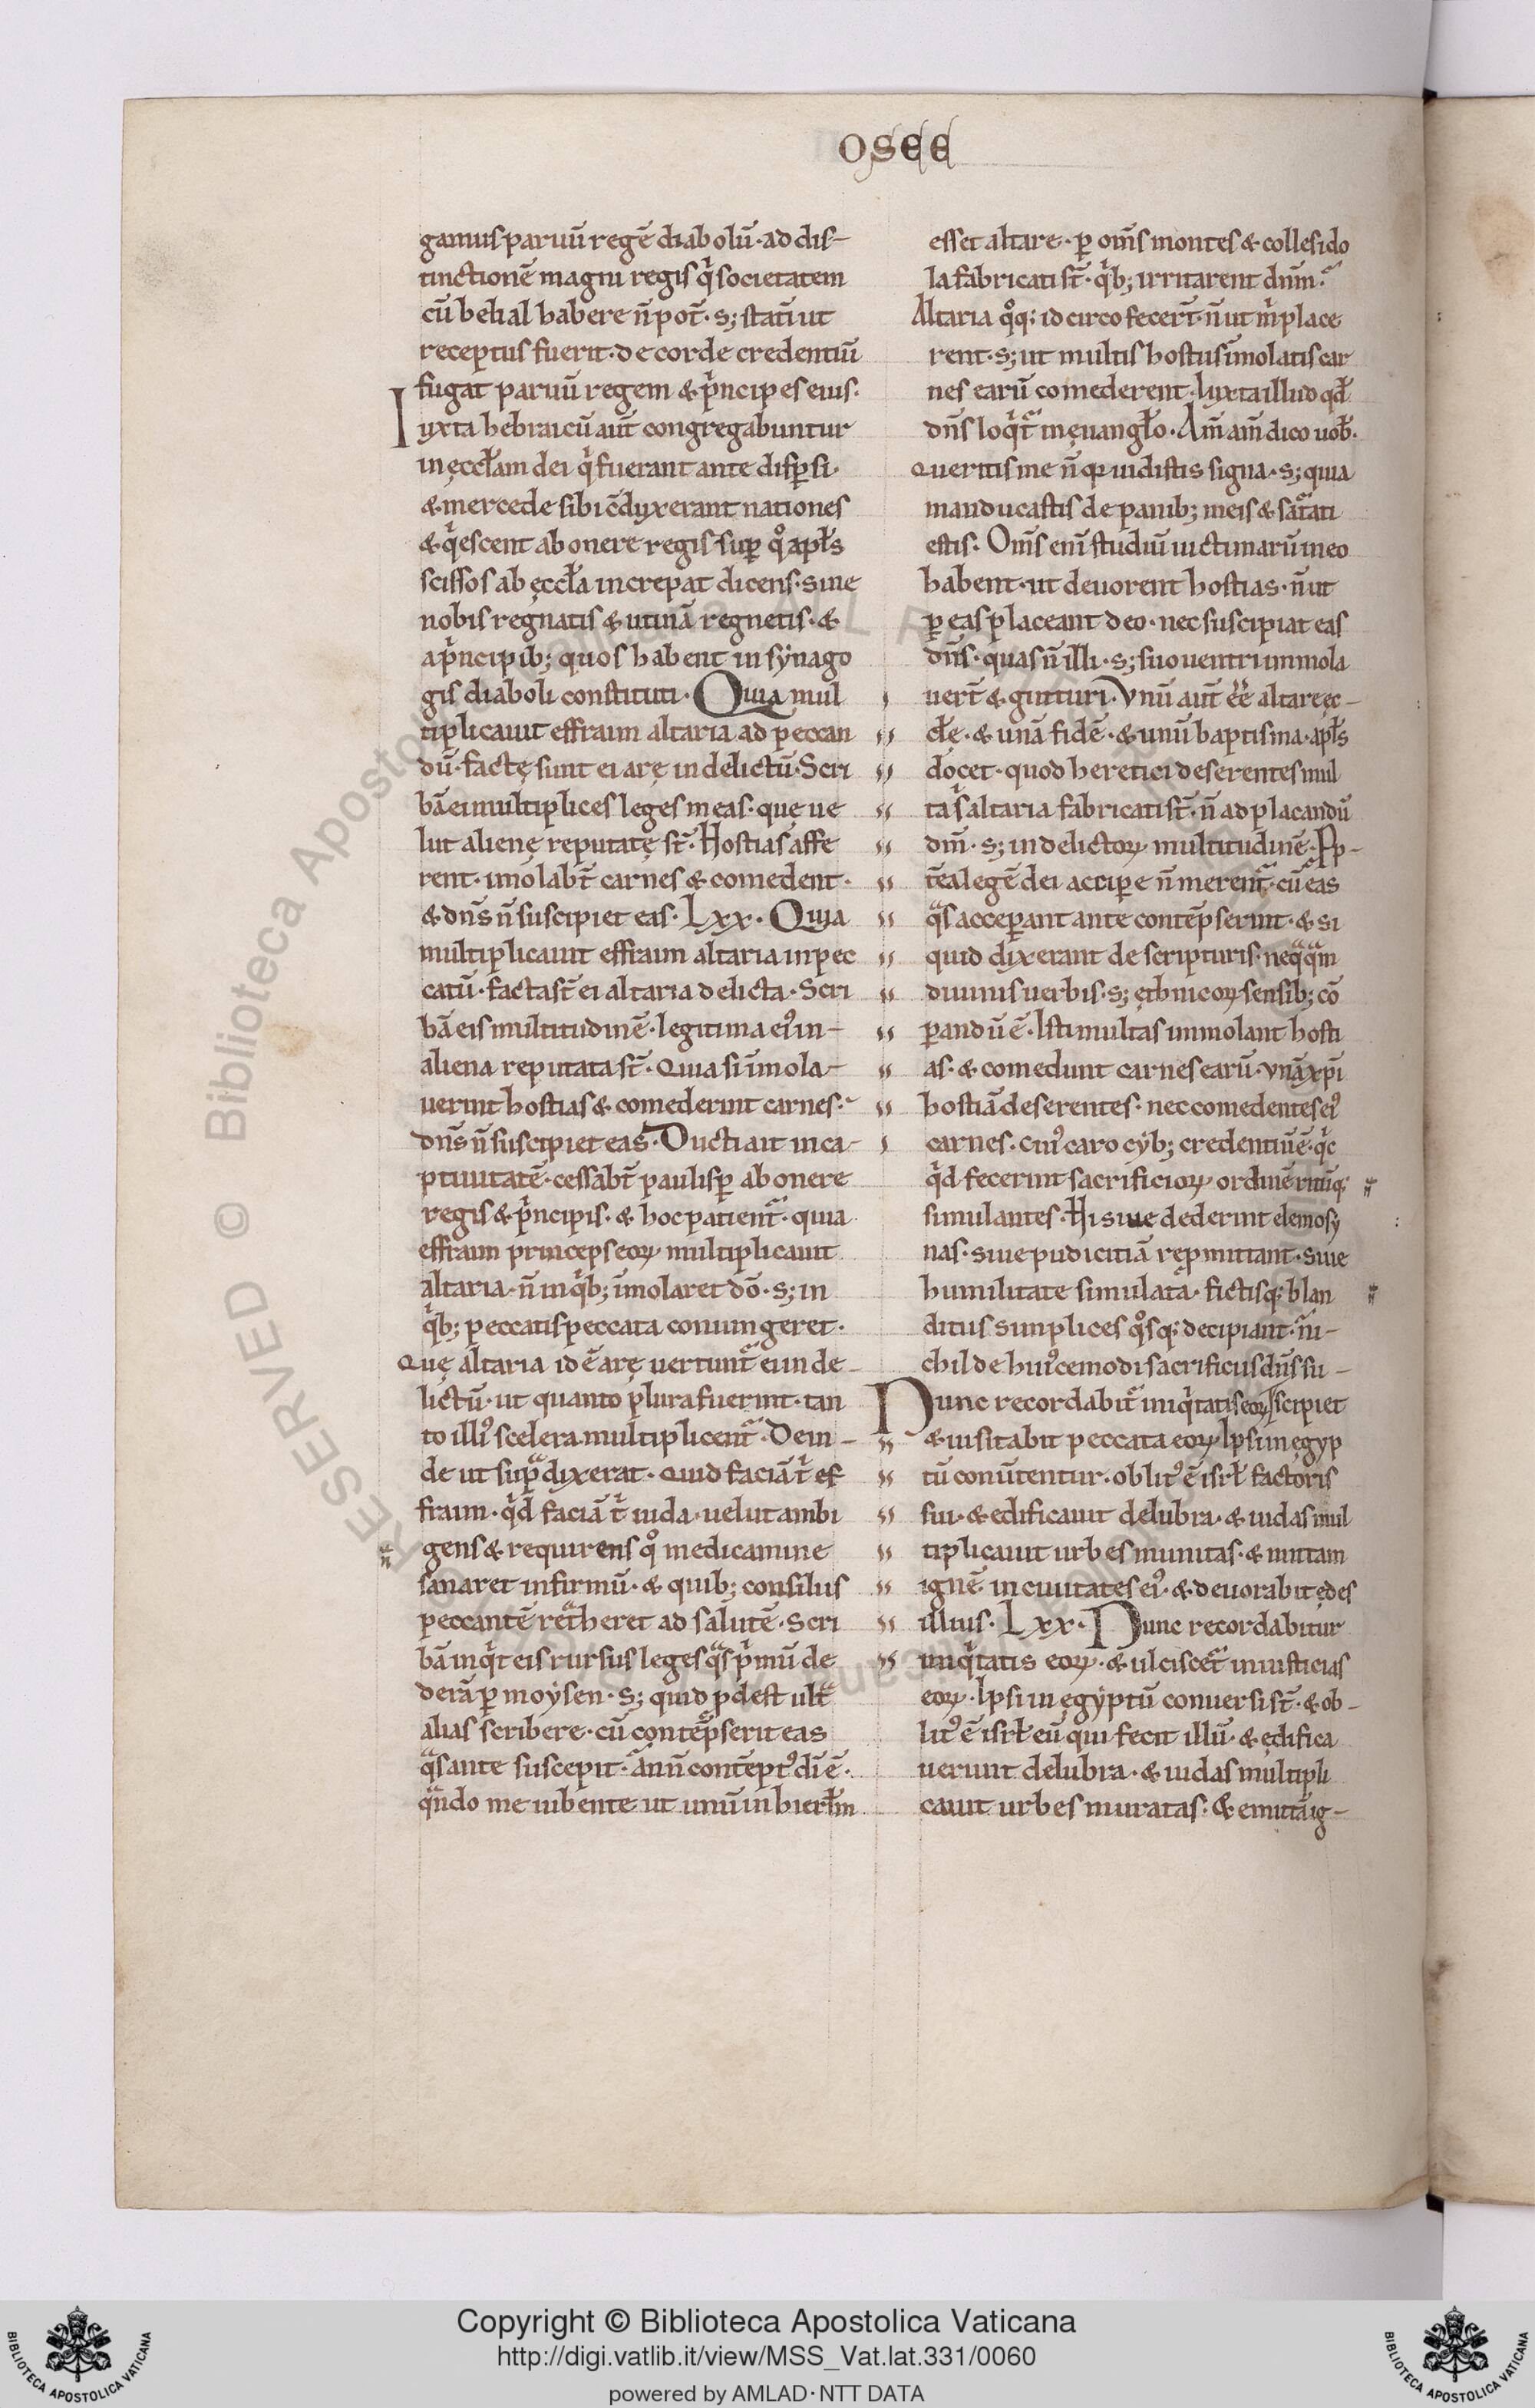 OSEE
gamus paruū regē diabolū· ad dis-
tinctionē magni regis q̇ societatem
cū belial habere n̄ pot̄· s; statī ut
receptus fuerit· de corde credentiū
fugat paruū regem & ṗncipes eius·
Iuxta hebraicū aūt congregabuntur
in ęccƚam dei q̇ fuerant ante disꝑsi·
& mercede sibi c̄duxerant nationes
& q̇escent ab onere regis· suꝑ qͦ apƚs
scissos ab ęccƚa increpat dicens· sine
nobis regnatis & utinā regnetis· &
a ṗncipib; quos habent in synago
gis diaboli constituti· Quia mul
tiplicauit effraim altaria ad peccan
dū· factę sunt ei arę in delictū· Scri
bā ei multiplices leges meas· quę ue
lut alienę reputatę st̄· Hostias affe
rent· imolabt̄ carnes & comedent·
& dn̄s n̄ suscipiet eas· Lxx· Quia
multiplicauit effraim altaria in pec
catū· facta st̄ ei altaria delicta· Scri
bā eis multitudinē· legitima eiꝰ in-
aliena reputata st̄· Quia si īmola-
uerint hostias & comederint carnes·
dn̄s n̄ suscipiet eas· Ducti aīt in ca-
ptiuitatē· cessabt̄ paulisꝑ ab onere
regis & ṗncipis· & hoc patient᷑· quia
effraim princeps eoꝝ multiplicauit
altaria· n̄ in q̇b; īmolaret dō· s; in
q̇b; peccatis peccata coniungeret·
Quę altaria id ē arę uertunt᷑ ei in de-
lictū· ut quanto plura fuerint· tan
to illiꝰ scelera multiplicent᷑· Dein-
de ut supᵃ dixerat· Quid faciā t̄ ef
fraim· q̇d faciā t̄ iuda· uelut ambi
gens & requirens qͦ medicamine
sanaret infirmū· & quib; consiliis
peccantē ret͛heret ad salutē· Scri
bā inq̇t eis rursus leges qᵃs ṗmū de
derā ꝑ moysen· S; quid ꝓdest ult͛
alias scribere· cū contēpserit eas
qᵃs ante suscepit· an n̄ contēptꝰ dī ē·
qᵃndo me iubente ut unū in hierƚm
esset altare· ꝑ om̄s montes & colles ido
la fabricati st̄· q̇b; irritarent dn̄m·
Altaria qͦq; idcirco fecert̄· n̄ ut m̄ place
rent· s; ut multis hostiis īmolatis car
nes earū comederent· Iuxta illud qđ
dn̄s loq̇t᷑ in ęuangƚo· Am̄ am̄ dico uob̄·
Queritis me n̄ qꝛ uidistis signa· s; quia
manducastis de panib; meis & sat͛ati
estis· Om̄s enī studiū uictimarū in eo
habent· ut deuorent hostias· n̄ ut
ꝑ eas placeant deo· nec suscipiat eas
dn̄s· quas n̄ illi· s; suo uentri immola
uert̄ & gutturi· Vnū aūt ēē altare ęc-
cƚę· & unā fidē· & unū baptisma· apƚs
docet· quod heretici deserentes mul
ta s̄ altaria fabricati st̄· n̄ ad placandū
dm̄· s; in delictoꝝ multitudinē· Pp-
t̄ea legē dei accipere n̄ merent᷑· cū eas
qᵃs acceꝑant ante contēpserint· & si
quid dixerant de scripturis· neqᵃqᵃm
diuinis uerbis· s; ethnicoꝝ sensib; cō
parandū ē· Isti multas immolant hosti
as· & comedunt carnes earū· vnā xp̄i
hostiā deserentes· nec comedentes eiꝰ
carnes· cuiꝰ caro cyb; credentiū ē· q̇c
q̇d fecerint sacrificioꝝ ordinē ritūq;
simulantes· Hi siue dederint elemosy
nas· siue pudicitiā repmittant· siue
humilitate simulata· fictisq; blan
ditiis simplices qͦsq; decipiant· ni-
chil de huiꝰcemodi sacrificiis dn̄s su-
Nunc recordabit᷑ iniq̇tatis eoꝝ / scipiet
& uisitabit peccata eoꝝ· Ipsi in ęgyp
tū conūtentur· oblitꝰ ē isrƚ factoris
sui· & edificauit delubra· & iudas mul
tiplicauit urbes munitas· & mittam
ignē in ciuitates eiꝰ· & deuorabit ędes
illius· Lxx· Nunc recordabitur
iniq̇tatis eoꝝ· & ulciscet᷑ iniusticias
eoꝝ· Ipsi in ęgyptū conuersi st̄· & ob-
litꝰ ē isrƚ eū qui fecit illū· & ędifica
uerunt delubra· & iudas multipli
cauit urbes muratas· & emittā ig-
© Biblioteca Apostolica Vaticana ALL RIGHTS RESERVED
Copyright © Biblioteca Apostolica Vaticana
http://digi.vatlib.it/view/MSS_Vat.lat.331/0060
powered by AMLAD·NTT DATA
BIBLIOTECA APOSTOLICA VATICANA
BIBLIOTECA APOSTOLICA VATICANA